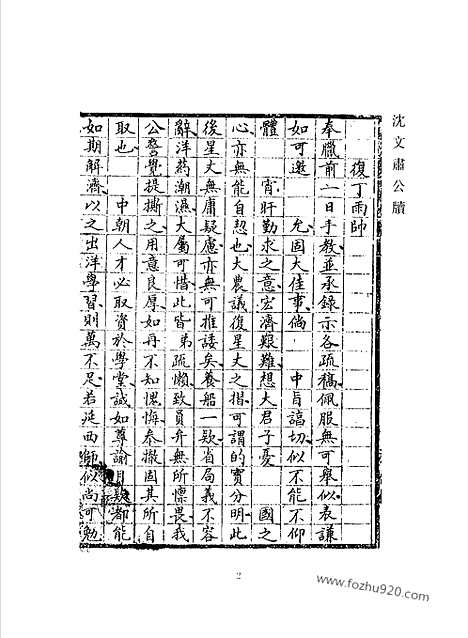 沈文肅公牘
復丁雨帥
奉臘前二日手教並承錄示各疏稿佩服無可舉似表謙
如可邀　允固大佳事倘　中旨諄切似不能不仰
體　宵旰勤求之意宏濟艱難想大君子憂　國之
心亦無能自恝也大農議復星丈之摺可謂的實分明此
後星丈無庸疑慮亦無可推諉矣養船一款省局義不容
辭洋药潮濕大屬可惜此皆弟疏懶致員弁無所懍畏我
公警覺提撕之用意良厚如再不知愧悔奉撤固其所自
取也　中朝人才必取資於學堂誠如尊諭月款都能
如期解濟以之出洋學習則萬不足若延西師似尚可勉
2
www.fozhu920.com